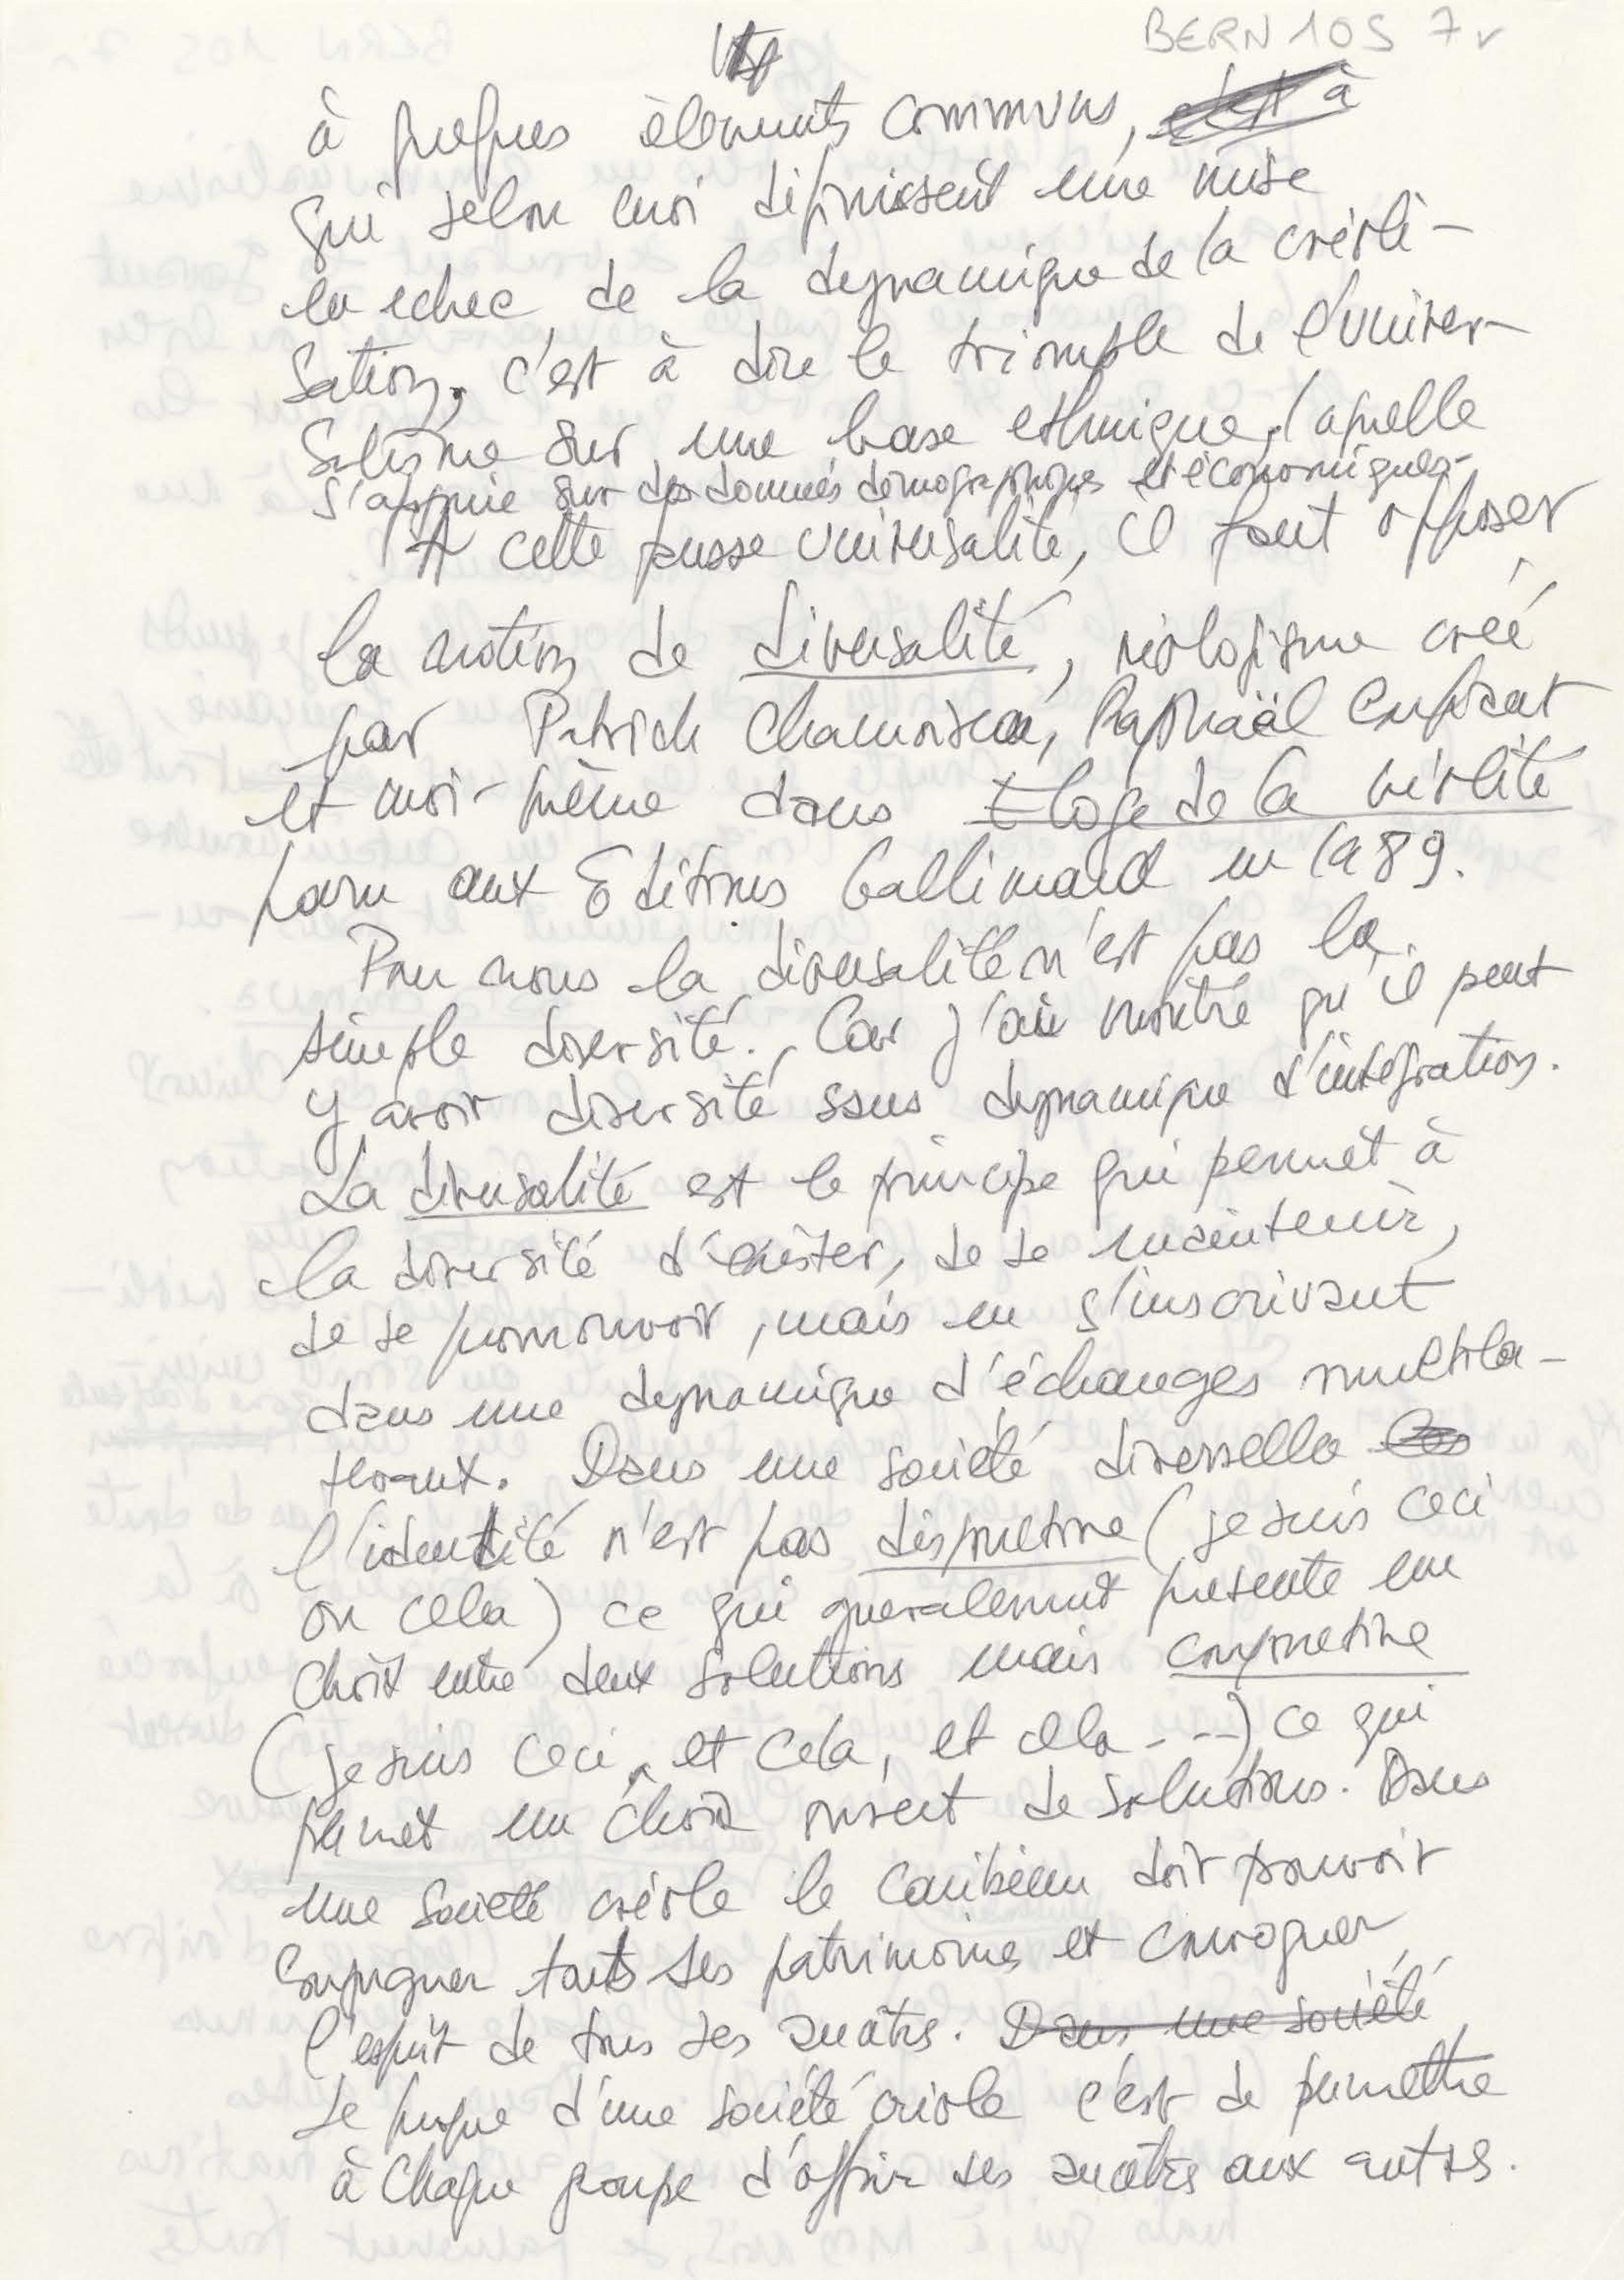 BERN 105 7v
à quelques éléments communs, c'est à
qui selon moi définissent une mise
en echec de la dynamique de la créoli-
sation, c'est à dire le triomphe de l'univer-
salisme sur une base ethnique, laquelle
s'appuie sur des données démographiques et économiques.
A cette fausse universalité, il faut opposer
la notion de diversalité, néologisme créé
par Patrick Chamoiseau, Raphaël Confiant
et moi-même dans Eloge de la créolité
paru aux Editions Gallimard en 1989.
Pour nous la diversalité n'est pas la
simple diversité. Car j'ai montré qu'il peut
y avoir diversité sans dynamique d'intégration.
La diversalité est le principe qui permet à
la diversité d'exister, de se maintenir,
de se promouvoir, mais en s'inscrivant
dans une dynamique d'échanges multila-
téraux. Dans une société diverselle les
l'identité n'est pas disjonctive (je suis ceci
ou cela) ce qui généralement présente un
choix entre deux solutions mais conjonctive
(je suis ceci, et cela, et cela ---) ce qui
permet un choix ouvert de solutions. Dans
une société créole le Caribéen doit pouvoir
conjuguer tous ses patrimoines et convoquer
l'esprit de tous ses ancêtres. Dans une société
Le propre d'une société créole c'est de permettre
à chaque groupe d'offrir ses ancêtres aux autres.